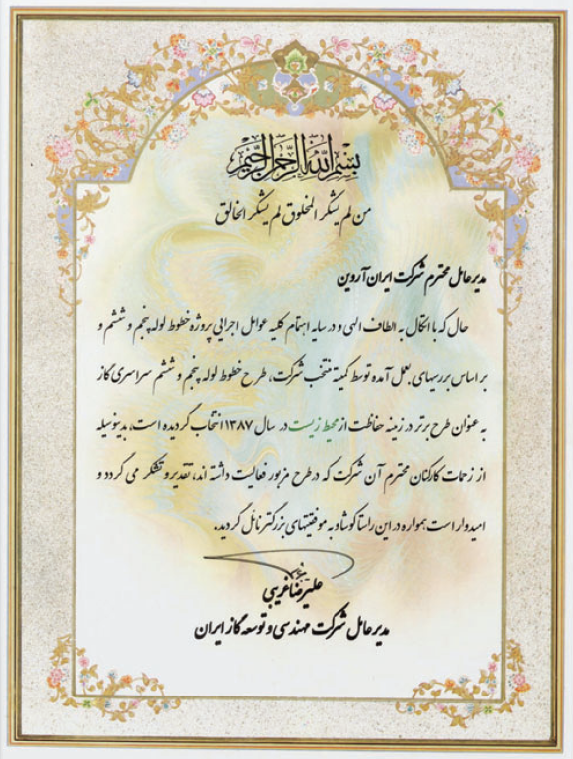 بسم الله الرحمن الرحیم
من لم یشکر المخلوق لم یشکر الخالق
مدیرعامل محترم شرکت ایران آروین
حال که با اتکال به الطاف الهی و در سایه اهتمام کلیه عوامل اجرایی پروژه خطوط لوله پنجم و ششم و
بر اساس بررسیهای بعمل آمده توسط کمیته منتخب شرکت، طرح خطوط لوله پنجم و ششم سراسری گاز
به عنوان طرح برتر در زمینه حفاظت از محیط زیست در سال ۱۳۸۷ انتخاب گردیده است، بدینوسیله
از زحمات کارکنان محترم آن شرکت که در طرح مزبور فعالیت داشته اند، تقدیر و تشکر می گردد و
امیدوار است همواره در این راستا کوشا و به موفقیتهای بزرگتر نائل گردید.
علیرضا غریبی
مدیرعامل شرکت مهندسی و توسعه گاز ایران